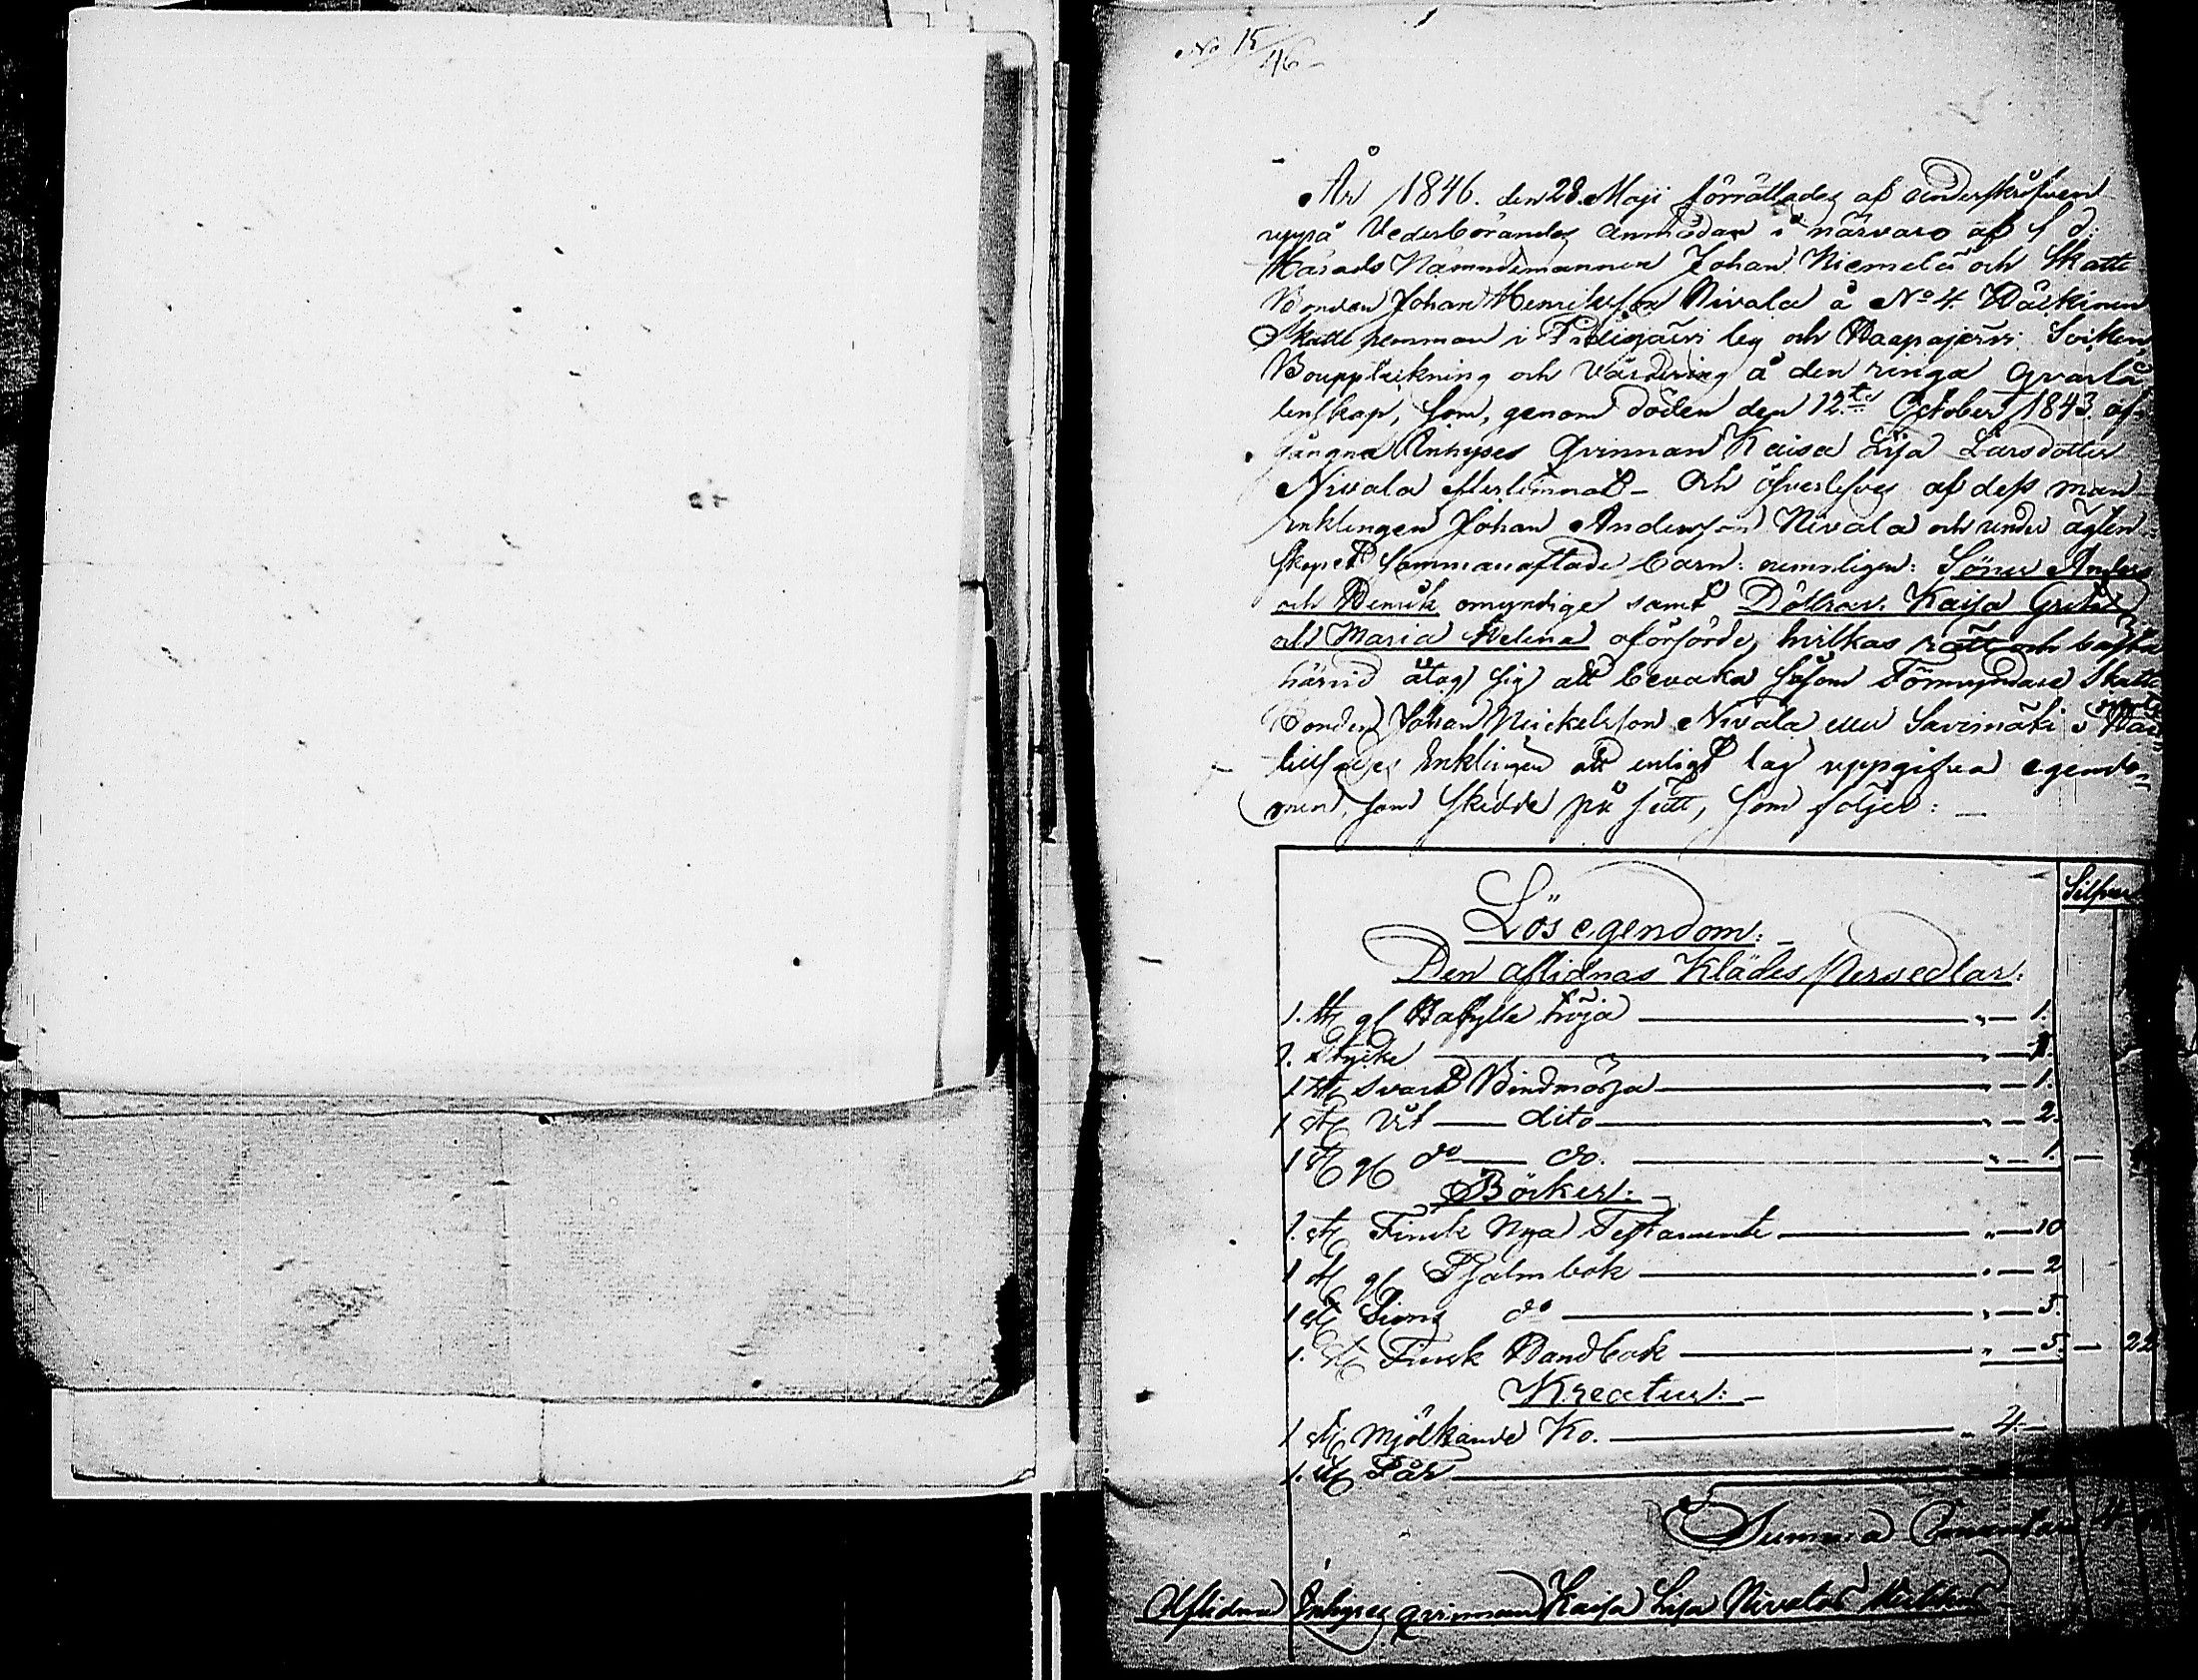 No 15/46
År 1846. den 28. Maji förrättades af underskrifven
uppå Vederbörandes anmodan i närvaro af f d:
Härads Nämndemannen Johan Niemelä och Skatte
Bonden Johan Henriksson Nivala å No 4.
Skatte hemman i Pidisjärvi by och Haapajervi Socken
Bouppteckning och värdering å den ringa qvarlå
tenskap, som, genom döden den 12te October 1843. af-
gångne Inhyses Qvinnan Kaisa Lisa Larsdotter
Nivala efterlemnat - och öfverlefves af dess man
Enklingen Johan Andersson Nivala och under ägten-
skapet sammanaflade barn: nemnligen: Söner Anders
och Henrik omyndige samt Döttrar: Kaisa Greta
och Maria Helena oförsörde, hvilkas rätt och bästa
härvid åtog sig att bevaka såsom Förmyndare Skatte
Bonden Johan Nivala eller Savimäki
Enklingen att enligt lag uppgifva egendo-
men, som skedde på sätt, som följer: -
Silfver
Lös egendom: -
Den aflidnas Klädes Persedlar:
1. st gl tröja " 1.
1. Stycke " 1.
1 st svart Bindmössa " 1.
1 st vit dito " 2.
1 st gl do do. " 1
Böcker: -
1. st Finsk Nya Testamente " 10
1 st gl Psalmbok " 2
1 st Sions do " 5.
1. st Finsk Handbok " 5. 22
Kreatur: -
1 st Mjölkande Ko. " 4.
1. st Får
Summa
Aflidna Inhyses qvinnan Kaisa Lisa Nivalas